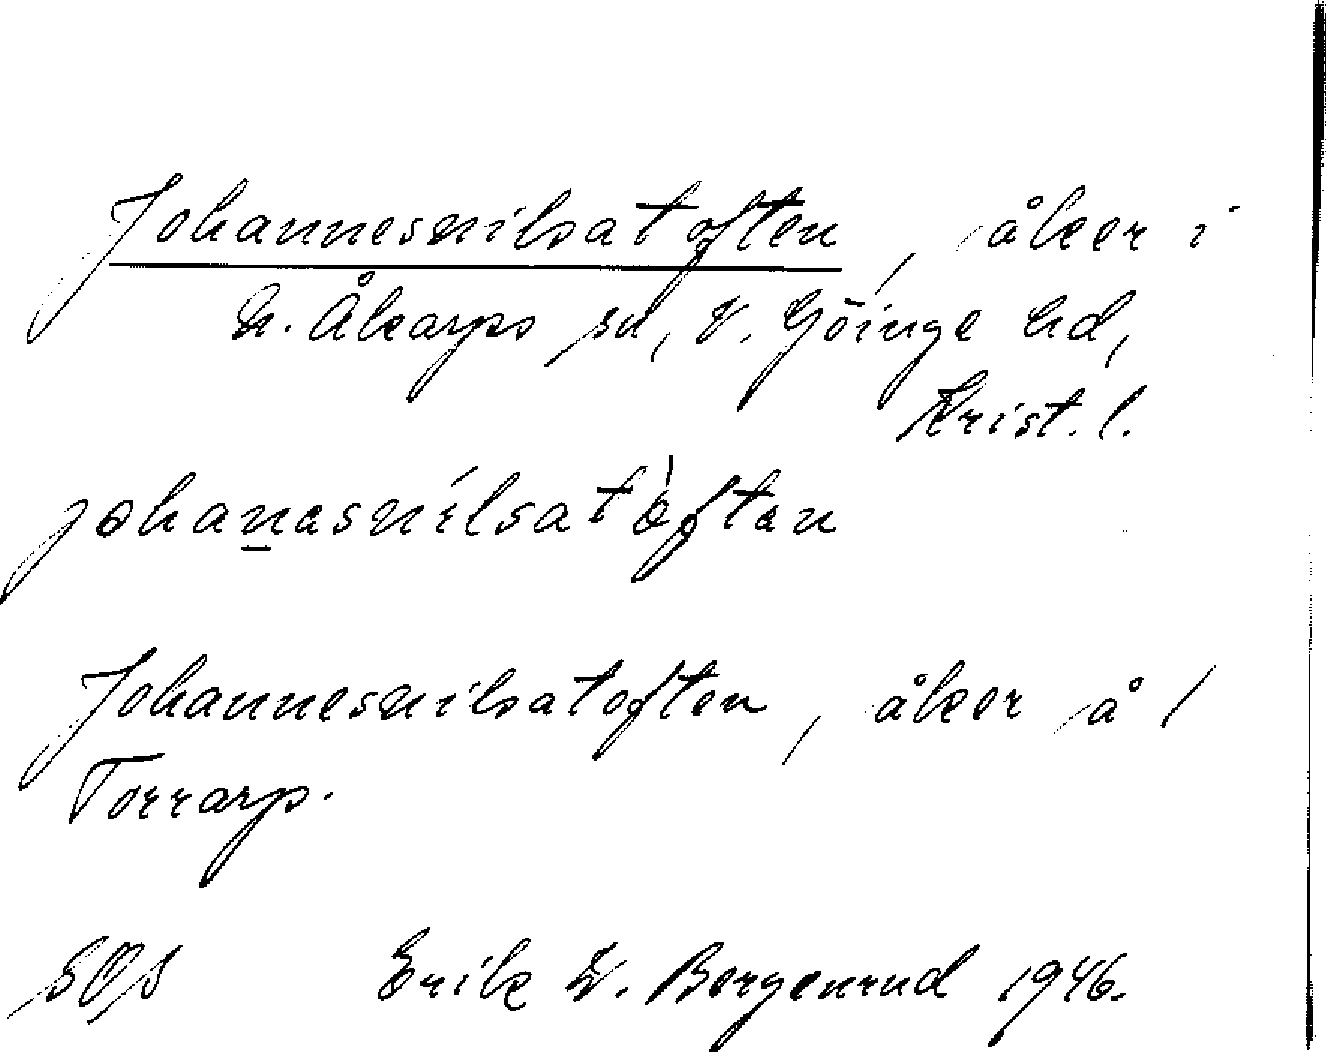 Johannesnilsatoften, åker i
N. Åkarps sn, V. Göinge hd,
Krist. l.
johanasnilsatòftan
Johannesnilsatoften, åker å 1
Torrarp.
SOS Erik W. Bergenrud 1946.